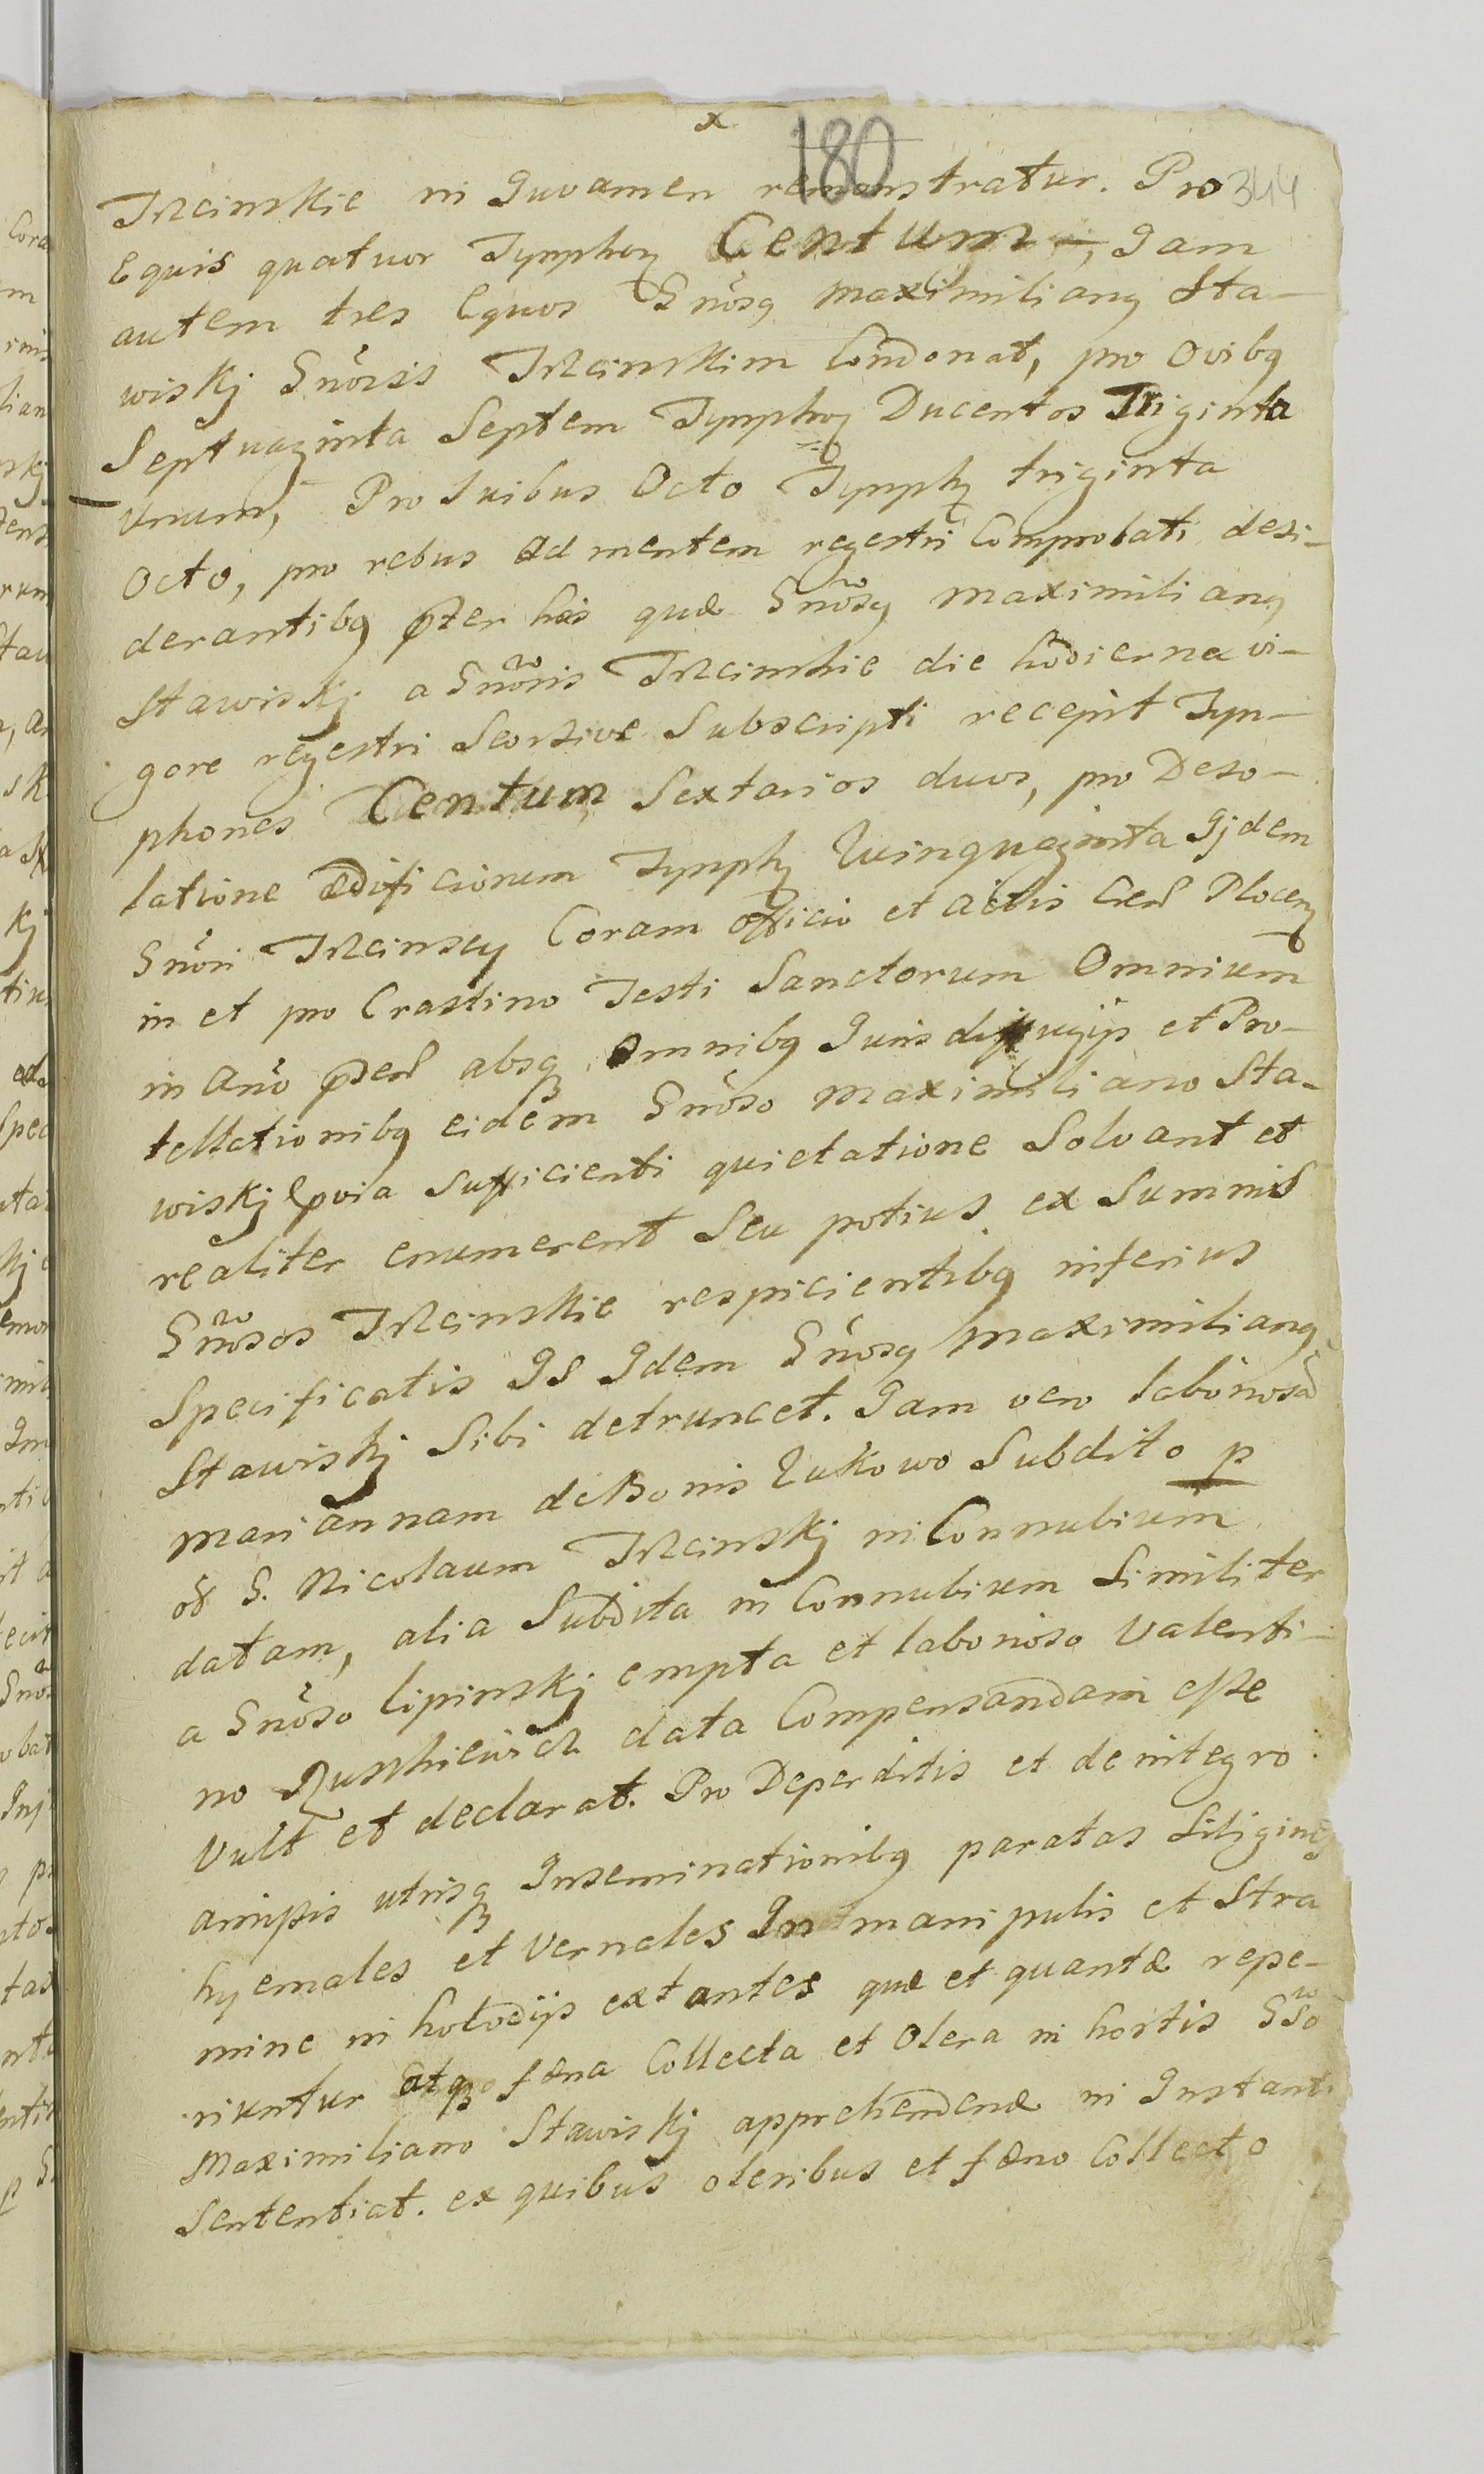 x
180
344
Trzcinskie in Juvamen remonstratur. Pro
Equis quatuor Tynphoꝝ Centum, Jam
autem tres Equos Gnōsꝯ Maximilianꝯ Sta-
wiskj Gnōsis Trzcinskim Condonat, pro Ovibꝯ
Septuaginta Septem Tynphoꝯ Ducentos Triginta
Unum, Pro Suibus Octo Tynphꝯ triginta
Octo, pro rebus ad mentem regestri Comprobati desi-
derantibꝯ p̄ter has quæ Gnōsꝯ Maximilianꝯ
Stawiskj a Gnōsis Trzcinskie die hodierna vi-
gore regestri Seorsive Subscripti recepit Tyn-
phones Centum, Sextarios duos, pro Deso-
latione ædificiorum Tynphꝯ Quinquaginta Ijdem
Gnōsi Trzcinscy Coram officio et Actis Cren̄ Plocenꝯ
in et pro Crastino Festi Sanctorum Omnium
in Añō p̄sen̄ absqꝫ omnibꝯ Juris diffugijs et Pro-
testationibꝯ eidem Gnōso Maximiliano Sta-
wiskj p̄via Sufficienti quietatione Solvant et
realiter enumerent Seu potius ex Summis
Gnōsos Trzcinskie respicientibꝯ inferius
Specificatis Is Idem Gnōsꝯ Maximilianꝯ
Stawiskj Sibi detruncet. Jam vero laboriosā
Mariannam de Bonis Zukowo Subdito p
olk G. Nicolaum Trzcinskj in Connubium
datam, alia Subdita in Connubium Similiter
a Gnōso Lipinskj empta et laborioso Valenti-
no data Compensandam esse
Vult et declarat. Pro Deperditis et de integro
amissis utrisqꝫ Inseminationibꝯ paratas Siligines
hyemales et Vernales In manipulis et Stra
mine in holodijs extantes quæ et quantæ repe-
riuntur atqꝫ fæna Collecta et Olera in hortis Gso
Maximiliano Stawiskj apprehendendæ in Instanti
Sententiat. ex quibus oleribus et fæno Collecto